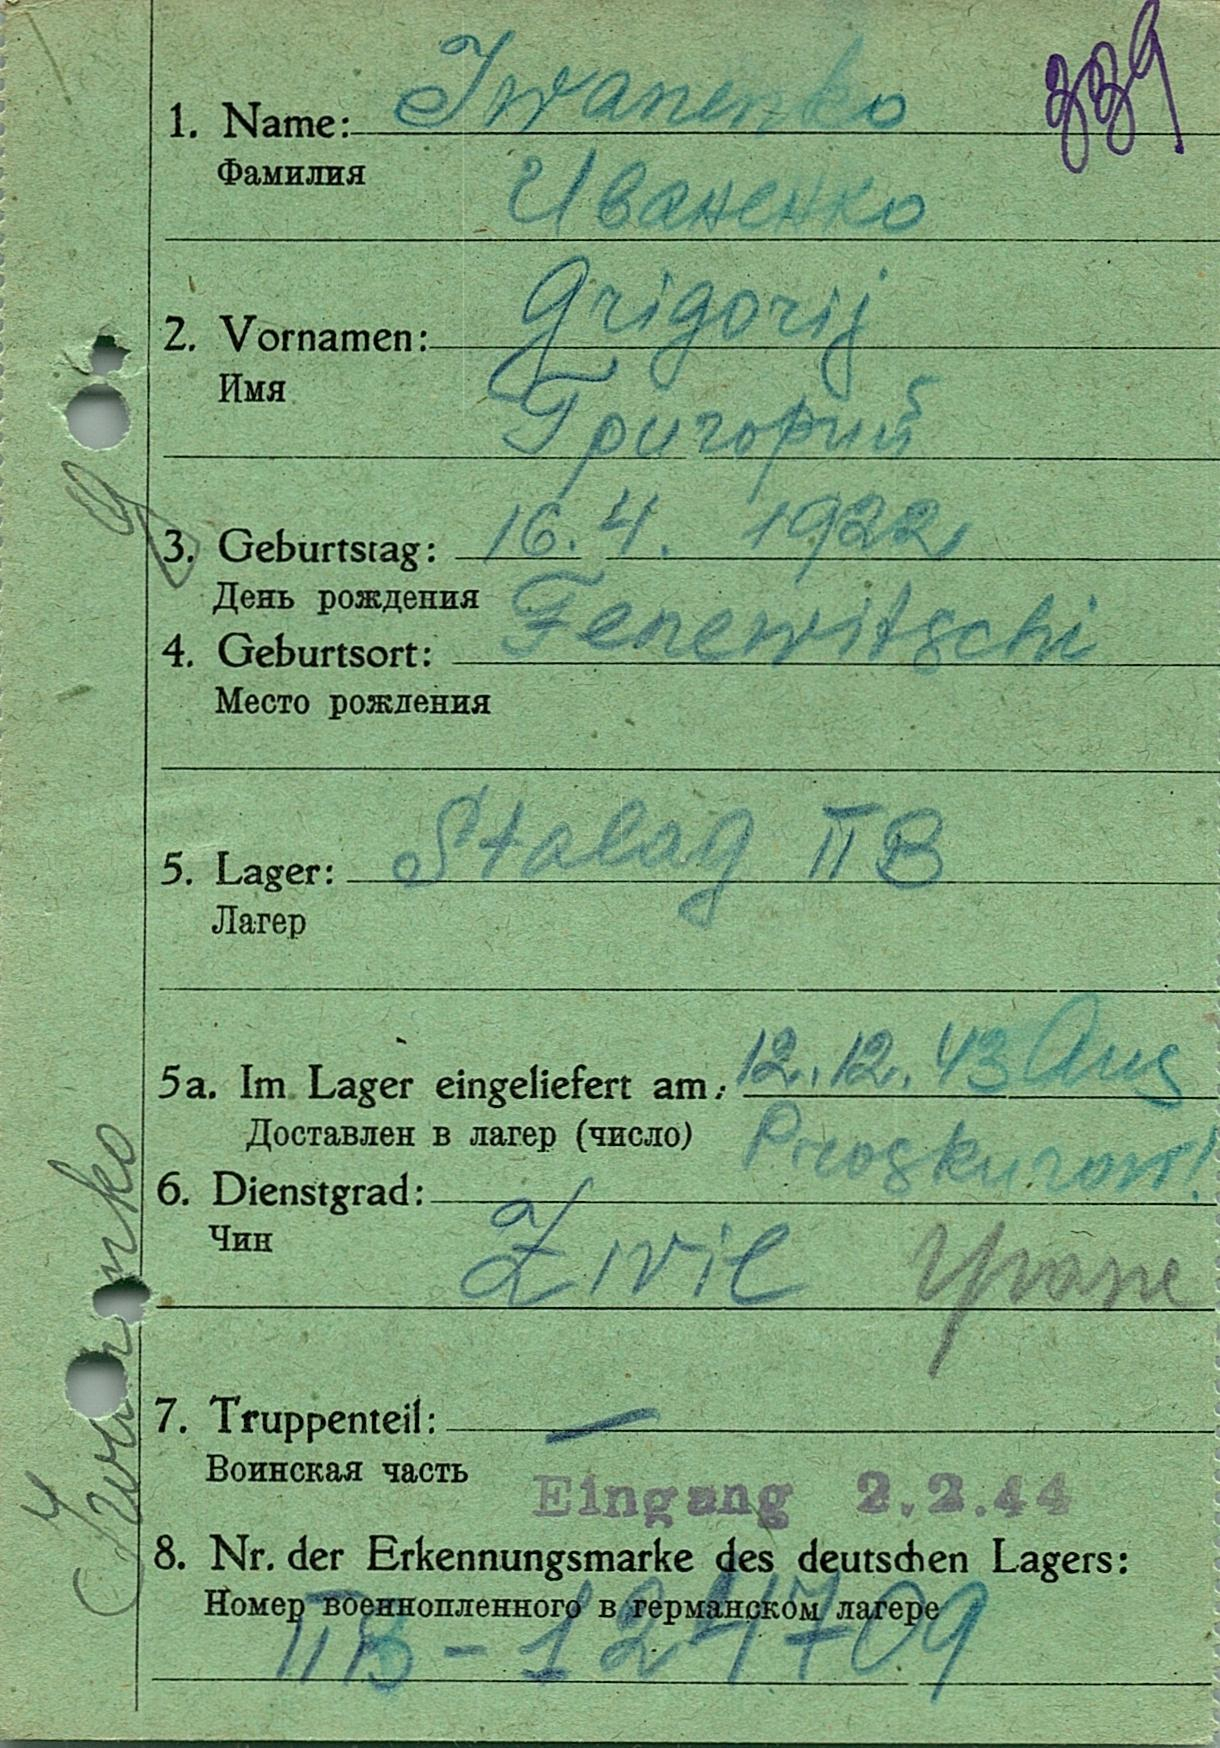 339
1. Name: Iwanenko
Фамилия Иваненко
2. Vornamen: Grigorij
Имя Григорий
3. Geburtstag: 16.4. 1922
День рождения
4. Geburtsort: Fenewitschi
Место рождения
5. Lager: Stalag II B
Лагер
5a. Im Lager eingeliefert am: 12.12.43 Aus
Доставлен в лагер (число) Proskurow!
6. Dienstgrad:
Чин Zivil
7. Truppenteil: —
Воинская часть
Eingang 2.2.44
8. Nr. der Erkennungsmarke des deutschen Lagers:
Номер военнопленного в германском лагере
II B - 124709
Iwanenko